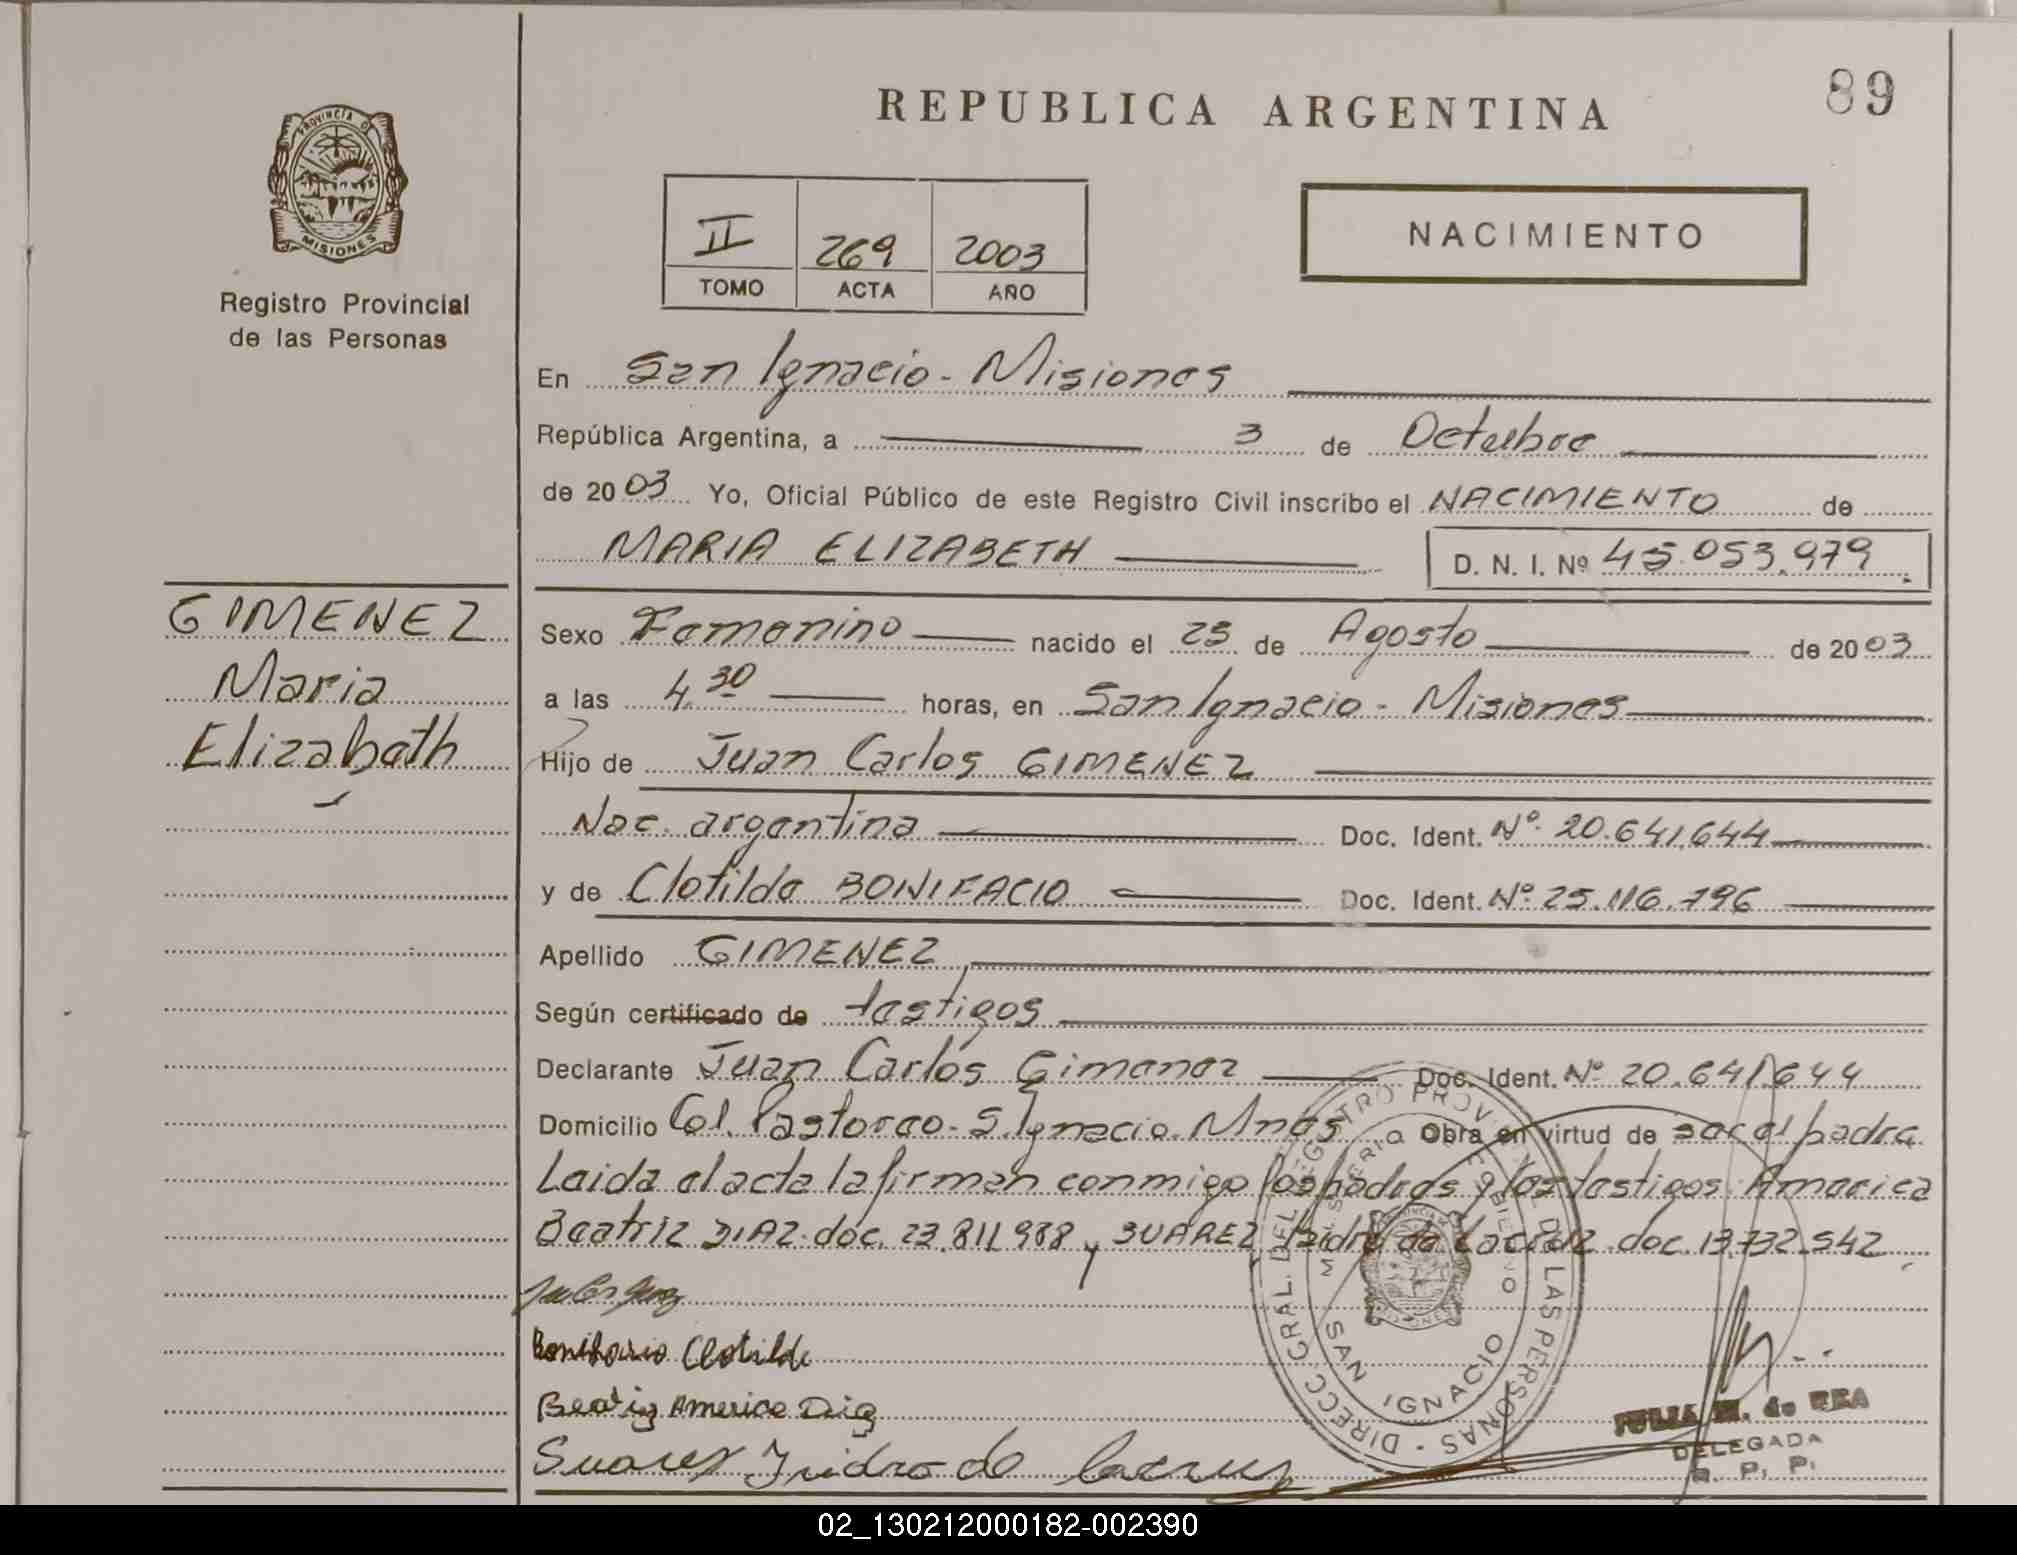 REPUBLICA ARGENTINA
89
PROVINCIA D
MISIONES
Registro Provincial
de las Personas
II 269 2003
TOMO ACTA AÑO
NACIMIENTO
En San Ignacio - Misiones
República Argentina, a 3 de Octubre
de 2003 Yo, Oficial Público de este Registro Civil inscribo el NACIMIENTO de
MARIA ELIZABETH D. N. I. Nº 45.053.979
GIMENEZ
Maria
Elizabeth
Sexo Femenino nacido el 25 de Agosto de 2003
a las 4.30 horas, en San Ignacio - Misiones
Hijo de Juan Carlos GIMENEZ
Nac. argentina Doc. Ident. Nº 20.641.644
y de Clotilde BONIFACIO Doc. Ident. Nº 25.116.796
Apellido GIMENEZ
Según certificado de testigos
Declarante Juan Carlos Gimenez Doc. Ident. Nº 20.641.644
Domicilio Col. Pastoreo - S. Ignacio. Mnes Obra en virtud de ser el padre
Leida el acta la firman conmigo los padres y los testigos: America
Beatriz DIAZ. doc. 23.811.988 y SUAREZ Isidro de la cruz. doc. 13.732.542
Bonifacio Clotilde
Beatriz America Diaz
Suarez Isidro de la cruz
DIRECC. GRAL. DEL REGISTRO PROVINCIAL DE LAS PERSONAS
MINISTERIO DE GOBIERNO
SAN IGNACIO
JULIA M. de REA
DELEGADA
R. P. P.
02_130212000182-002390